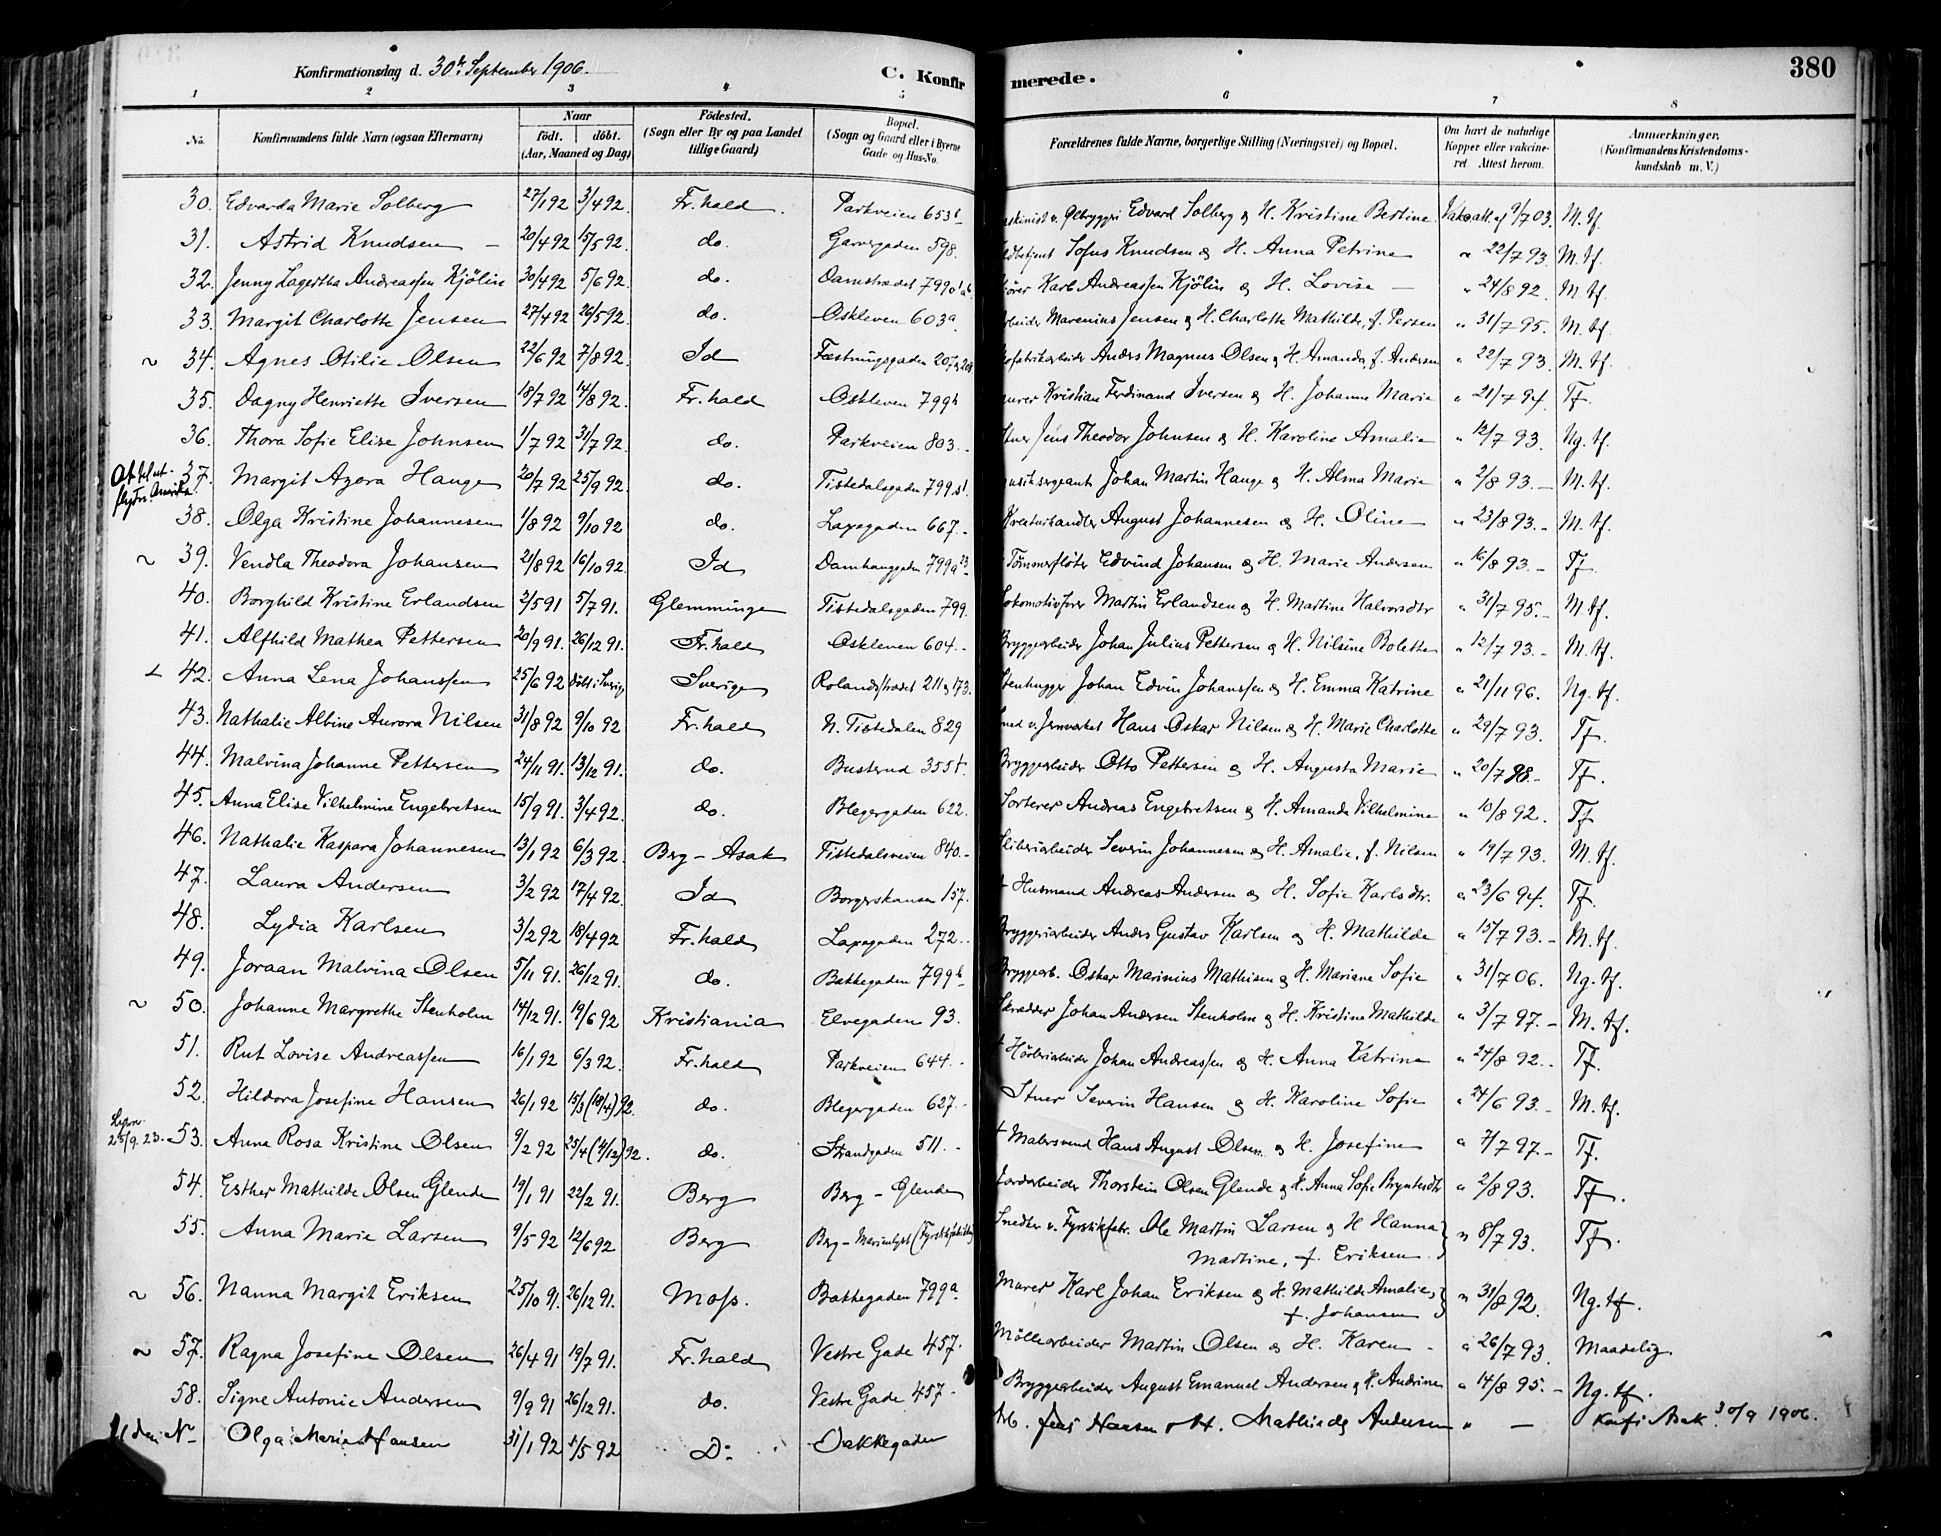 Konfirmationsdag d. 30te September 1906.
C. Konfirmerede.
380
1 2 3 4 5 6 7 8
No. Konfirmandens fulde Navn (ogsaa Efternavn) Naar født. døbt. (Aar, Maaned og Dag) Fødested. (Sogn eller By og paa Landet tillige Gaard) Bopæl. (Sogn og Gaard eller i Byerne Gade og Hus-No. Forældrenes fulde Navne, borgerlige Stilling (Næringsvei) og Bopæl. Om havt de naturlige Kopper eller vakcineret. Attest herom. Anmærkninger. (Konfirmandens Kristendomskundskab m. V.)
30. Edvarda Marie Solberg 27/1 92 3/4 92. Fr.hald. Parkveien 653 Ølbryggri Edvard Solberg & H. Kristine Bertine 9/7 03. M. tf.
31. Astrid Knudsen 20/4 92 15/5 92. do. Garvergaden 598. Sofus Knudsen & H. Anna Petrine " 22/7 93. M. tf.
32. Jenny Lagertha Andreassen Kjölin 30/4 92 5/6 92. do. Damstrædet 799 Karl Andreassen Kjölin & H. Lovise " 24/8 92. M. tf.
33. Margit Charlotte Jensen 27/4 92 26/5 92. do. Oskleven 603a. Marenius Jensen & H. Charlotte Mathilde, f. Persen " 31/7 95. M. tf.
34. Agnes Otilie Olsen 22/6 92 7/8 92. Id Fæstningsgaden 207 & 208 Anders Magnus Olsen & H. Amanda, f. Andersen " 22/7 93. M. tf.
35. Dagny Henriette Iversen 18/7 92 14/8 92. Fr.hald Oskleven 799h Kristian Ferdinand Iversen & H. Johanne Marie " 21/7 94. Tf.
36. Thora Sofie Elise Johnsen 1/7 92 31/7 92. do. Parkveien 803. Jens Theodor Johnsen & H. Karoline Amalie " 12/7 93. Ng. tf.
37. Margit Azora Hauge 20/7 92 25/9 92. do. Tistedalsgaden 799 Johan Martin Hauge & H. Alma Marie " 2/8 93. M. tf.
38. Olga Kristine Johannesen 1/8 92 9/10 92 do. Laxegaden 667. Kreaturhandler August Johannesen & H. Oline " 23/8 93. M. tf.
39. Vendla Theodora Johansen 21/8 92 16/10 92. Id Damhauggaden 799a Tømmerfløter Edvind Johansen & H. Marie Andersen " 16/8 93. Tf
40. Borghild Kristine Erlandsen 2/5 91 5/7 91. Glemminge Tistedalsgaden 799. Lokomotivfører Martin Erlandsen & H. Martine Halvorsdtr " 31/7 95. M. tf.
41. Alfhild Mathea Pettersen 20/9 91. 26/12 91. Fr.hald Oskleven 604. Bryggearbeider Johan Julius Pettersen & H. Nilsine Bolette " 12/7 93. M. tf.
42. Anna Lena Johanssen 25/6 92 døbt i Sverige Sverige Rolandsstrædet 211 & 173. Stenhugger Johan Edvin Johanssen & H. Emma Katrine " 21/11 96. Ng. tf.
43. Nathalie Albine Aurora Nilsen 31/8 92 9/10 92 Fr.hald N. Tistedalen 829 Smed v. Jernværket Hans Oskar Nilsen & H. Marie Charlotte " 29/7 93. Tf.
44. Malvina Johanne Pettersen 24/11 91. 13/12 91. do. Busterud 355t. Bryggearbeider Otto Pettersen & H. Augusta Marie " 20/7 98. Tf.
45. Anna Elise Vilhelmine Engebretsen 15/9 91. 3/4 92. do. Blegergaden 622. Sorterer Andreas Engebretsen & H. Amanda Vilhelmine " 10/8 92. Tf
46. Nathalie Kaspara Johannesen 13/1 92 6/3 92. Berg - Asak Tistedalsveien 840. Sliberiarbeider Severin Johannesen & H. Amalie, f. Nilsen " 19/7 93. M. tf.
47. Laura Andersen 3/2 92 17/4 92. Id Borgerskansen 157. + Husmand Andreas Andersen & H. Sofie Karlsdtr. " 23/6 94. Tf.
48. Lydia Karlsen 3/2 92 18/4 92 Fr.hald Laxegaden 272. Bryggeriarbeider Anders Gustav Karlsen & H. Mathilde " 15/7 93. M. tf.
49. Joraan Malvina Olsen 5/11 91. 26/12 91. do. Bakkegaden 799h Bryggearb. Oskar Marinius Mathisen & H. Mariane Sofie " 31/7 06. Ng. tf.
50. Johanne Margrethe Stenholm 14/12 91. 19/6 92 Kristiania Elvegaden 93. Skrædder Johan Andersen Stenholm & H. Kristine Mathilde " 3/7 97. M. tf.
51. Rut Lovise Andreassen 16/1 92 6/3 92. Fr.hald Parkveien 644. Johan Andreassen & H. Anna Katrine " 24/8 92. Tf.
52. Hildora Josefine Hansen 26/1 92 15/3 (18/4) 92. do. Blegergaden 627. Stuer Severin Hansen & H. Karoline Sofie " 24/6 93. M. tf.
25/9. 23. 53. Anna Rosa Kristine Olsen 9/2 92 25/4 (4/12) 92. do. Strandgaden 511. + Malersvend Hans August Olsen & H. Josefine " 7/7 97. Tf.
54. Esther Mathilde Olsen Glende 19/1 91 22/2 91. Berg Berg - Glende Jordarbeider Thorstein Olsen Glende & H. Anna Sofie " 2/8 93. Tf.
55. Anna Marie Larsen 9/5 92 12/6 92 Berg Berg - Marienlyst Snedker v. Fyrstikfabr. Ole Martin Larsen & H Hanna " 8/7 93. Tf.
Martine, f. Eriksen
56. Nanna Margit Eriksen 25/10 91. 26/12 91. Moss. Bakkegaden 799a. Murer Karl Johan Eriksen & H. Mathilde Amalie, " 31/8 92. Ng. tf.
f. Johansen
57. Ragna Josefine Olsen 26/4 91 19/7 91. Fr.hald Vestre Gade 457. Møllearbeider Martin Olsen & H. Karen " 26/7 93. Maadelig
58. Signe Antonie Andersen 9/9 91 26/12 91. do. Vestre Gade 457 Bryggearbeider August Emanuel Andersen & H. Andrine " 14/8 95. Ng. tf.
Uden No Olga Marie Hansen 31/1 92 1/5 92 Do Bakkegaden Arb. Jens Hansen & H. Mathilde Andersen " Konf i Asak 30/9 1906.